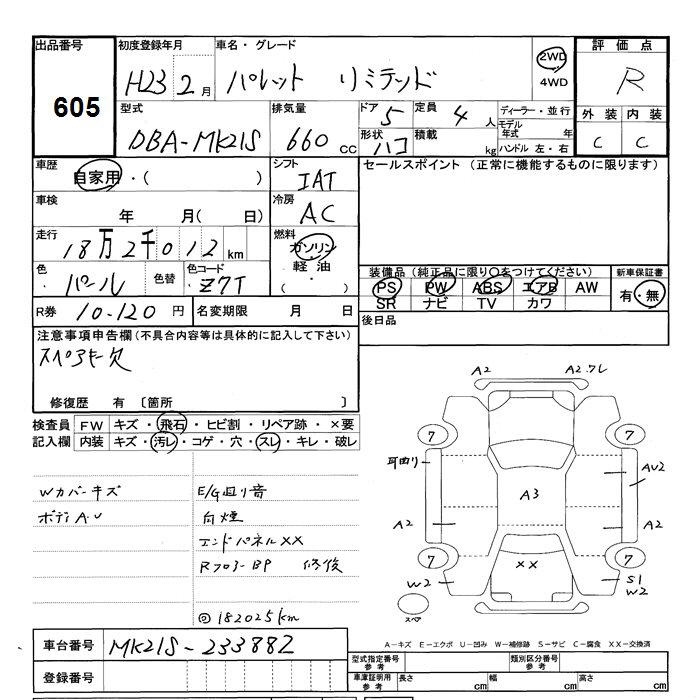 出品番号 初度登録年月 車名・グレード 評価点
605
H23 2月 パレット リミテッド 2WD 4WD R
型式 排気量 ドア 5 定員 4人 ディーラー・並行 外装 内装
DBA-MK21S 660cc 形状 ハコ 積載 kg モデル年式 年 ハンドル 左・右 C C
車歴 自家用・( ) シフト IAT セールスポイント (正常に機能するものに限ります)
車検 年 月( 日) 冷房 AC
走行 18万2千012km 燃料 ガソリン 軽油 ・( )
色 パール 色替 色コード Z7T
装備品 (純正品に限り○をつけてください) 新車保証書
PS PW ABS エアB AW 有・無
SR ナビ TV カワ
R券 10.120円 名変期限 月 日 後日品
注意事項申告欄 (不具合内容等は具体的に記入して下さい)
スペアキー欠
修復歴 有 〔箇所 〕
検査員 FW キズ・飛石・ヒビ割・リペア跡・×要
記入欄 内装 キズ・汚レ・コゲ・穴・スレ・キレ・破レ
Wカバーキズ E/G回り音
ボディA.U 白煙
エンドパネルXX
Rフロアー BP 修復
◎182025km
A2 A2.フレ
7 7
耳曲り AU2
A3
A2 A2
7 XX 7
W2 S1 W2
スペア
A-キズ E-エクボ U-凹み W-補修跡 S-サビ C-腐食 XX-交換済
車台番号 MK21S-233882
型式指定番号 参考 類別区分番号 参考
登録番号 車庫証明用 参考 長さ cm 幅 cm 高さ cm